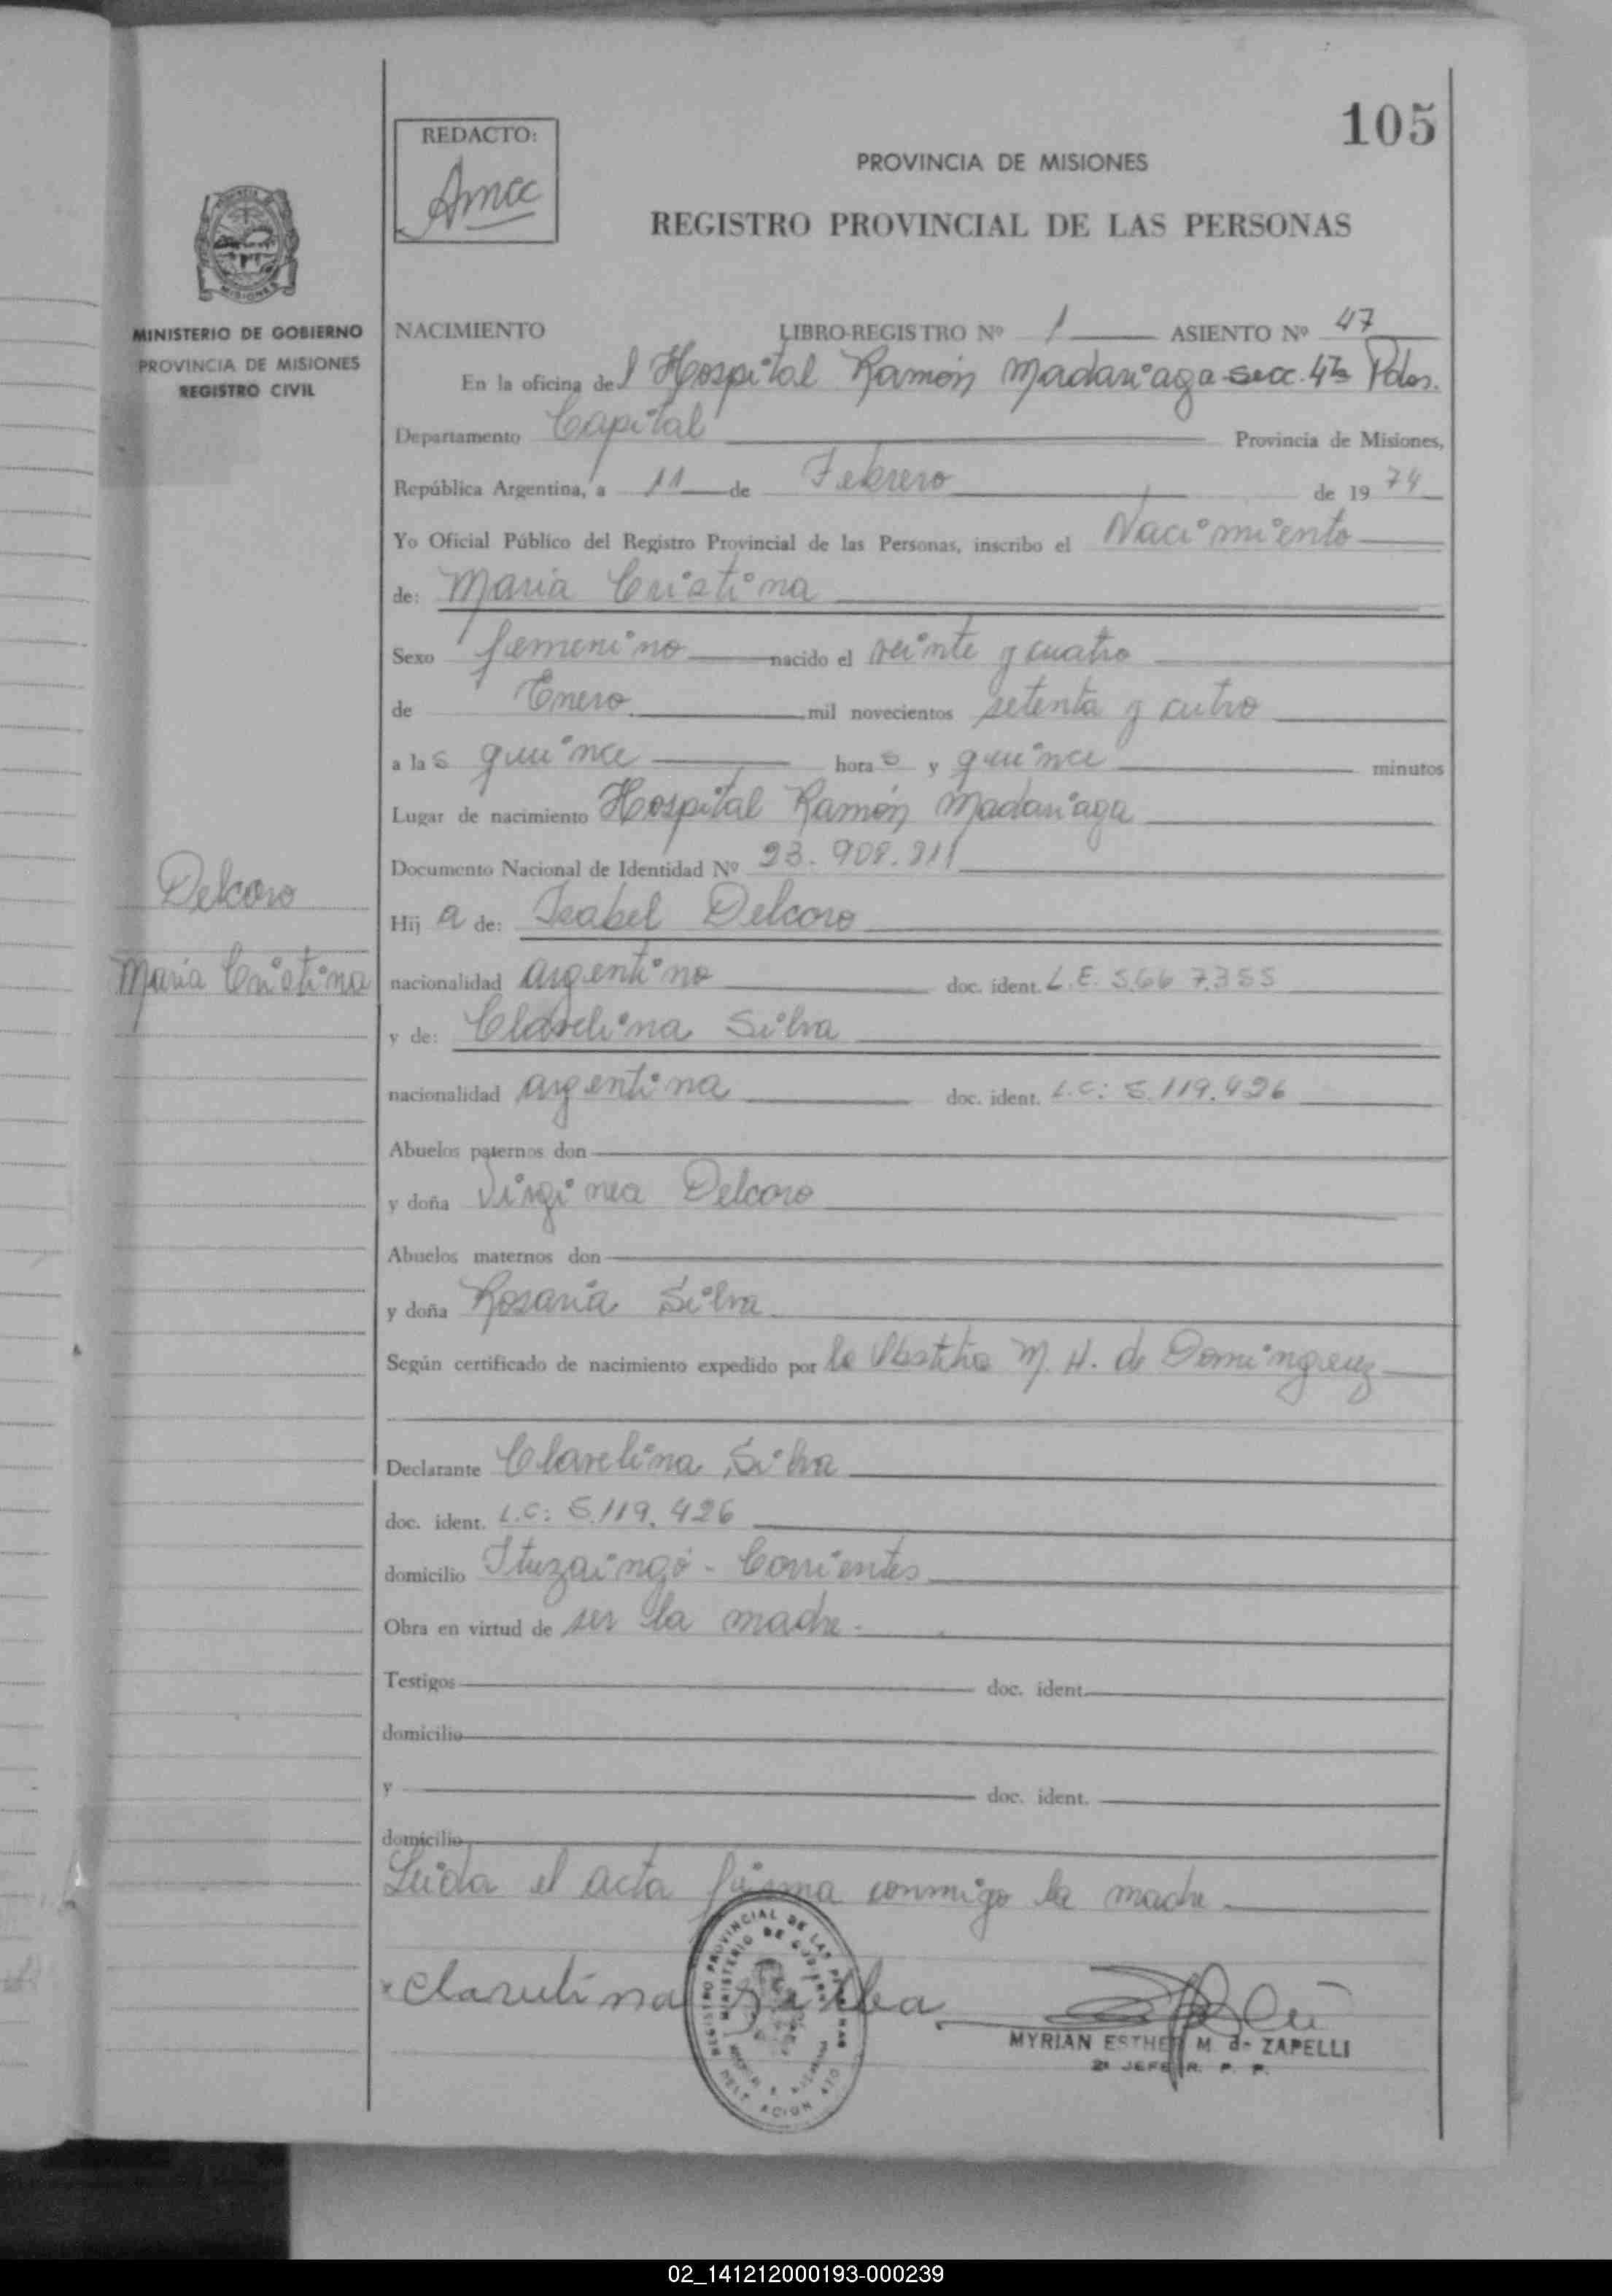 105
REDACTO:
Amcc
PROVINCIA DE MISIONES
REGISTRO PROVINCIAL DE LAS PERSONAS
MISIONES
MINISTERIO DE GOBIERNO
PROVINCIA DE MISIONES
REGISTRO CIVIL
NACIMIENTO LIBRO-REGISTRO Nº 1 ASIENTO Nº 47
En la oficina del Hospital Ramón Madariaga secc. 4ta Pdas.
Departamento Capital Provincia de Misiones,
República Argentina, a 11 de Febrero de 1974
Yo Oficial Público del Registro Provincial de las Personas, inscribo el Nacimiento
de: Maria Cristina
Sexo femenino nacido el veinte y cuatro
de Enero mil novecientos setenta y cutro
a las quince horas y quince minutos
Lugar de nacimiento Hospital Ramón Madariaga
Documento Nacional de Identidad Nº 23.908.911
Delcoro
Maria Cristina
Hija de: Isabel Delcoro
nacionalidad argentino doc. ident. L.E. 5.66 7.355
y de: Clavelina Silva
nacionalidad argentina doc. ident. L.C: 5.119.426
Abuelos paternos don
y doña Virginea Delcoro
Abuelos maternos don
y doña Rosaria Silva
Según certificado de nacimiento expedido por la M. H. de Dominguez
Declarante Clavelina Silva
doc. ident. L.C: 5.119.426
domicilio Ituzaingó - Corrientes
Obra en virtud de ser la madre.
Testigos doc. ident.
domicilio
y doc. ident.
domicilio
Leida el acta firma conmigo la madre
Clarulina Silba
REGISTRO PROVINCIAL DE LAS PERSONAS
MINISTERIO DE GOBIERNO
MYRIAN ESTHER M. de ZAPELLI
2ª JEFE R. P. P.
02_141212000193-000239